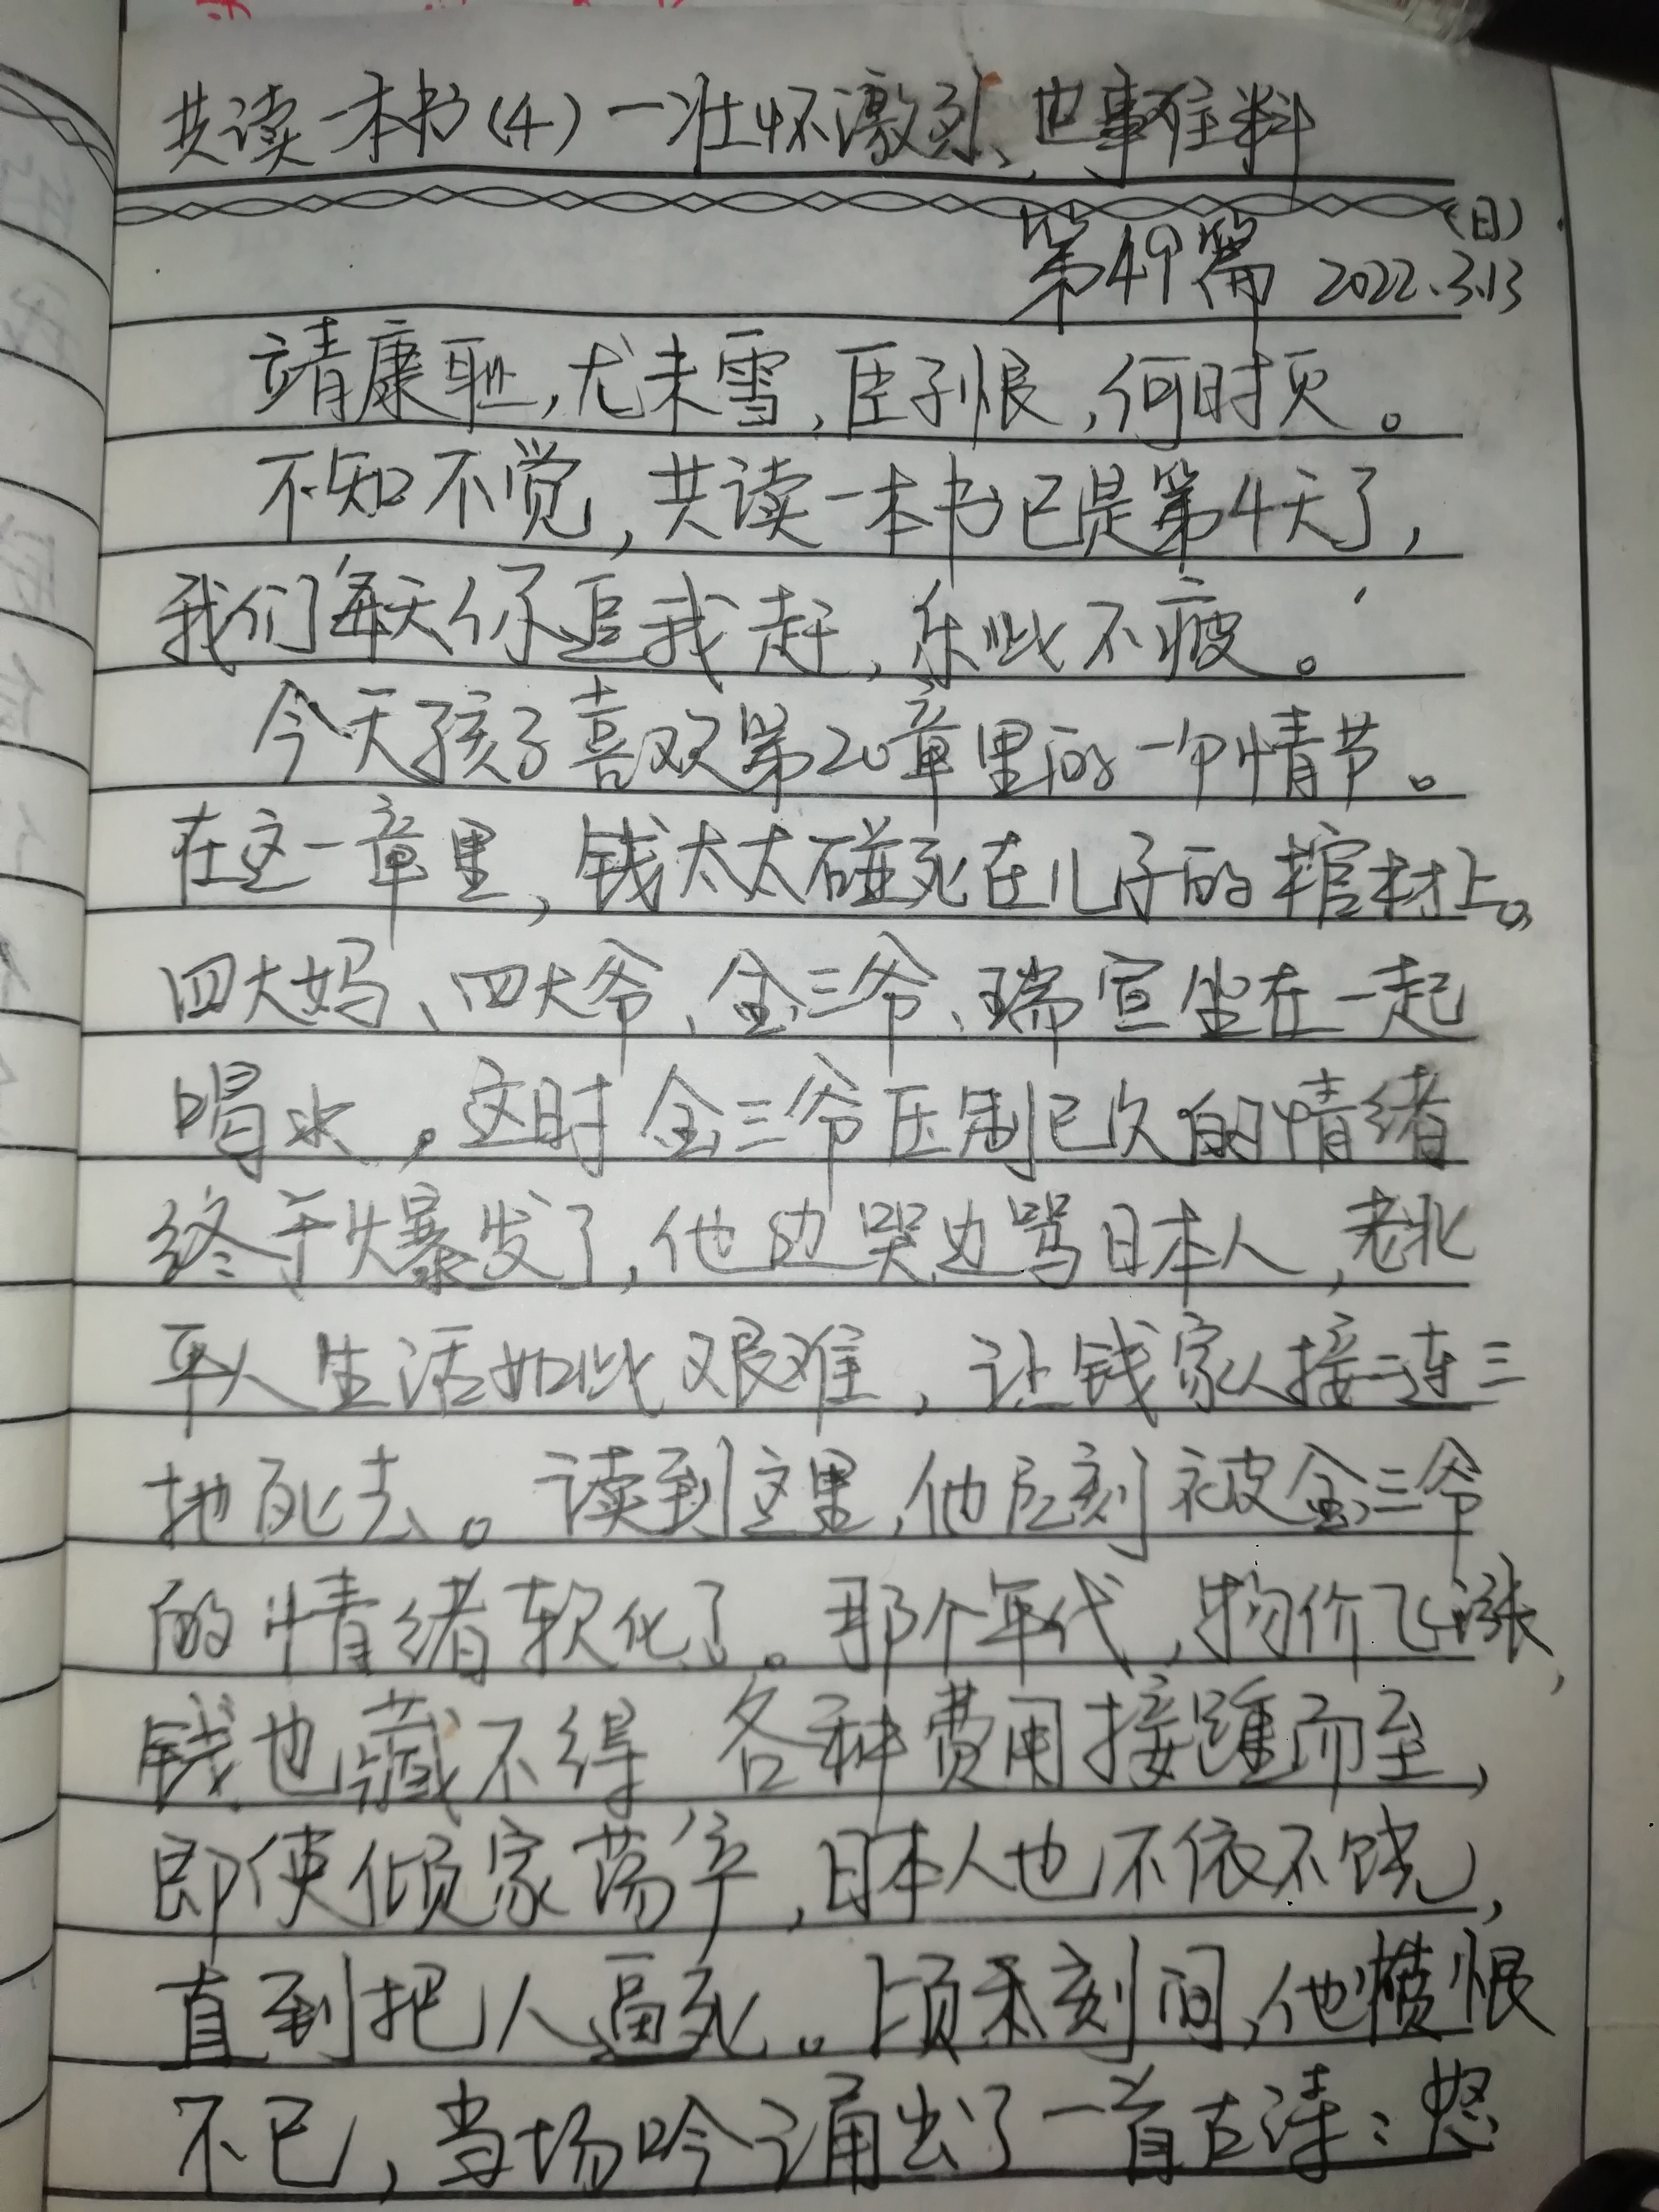 共读一本书(4)一壮怀激烈、世事难料
(日)
第49篇 2022.3.13
靖康耻,尤未雪,臣子恨,何时灭。
不知不觉,共读一本书已是第4天了,
我们每天你追我赶,乐此不疲。
今天孩子喜欢第20章里的一个情节。
在这一章里,钱太太碰死在儿子的棺材上。
四大妈、四大爷、金三爷、瑞宣坐在一起
喝水。这时金三爷压制已久的情绪
终于爆发了,他边哭边骂日本人,老北
平人生活如此艰难,让钱家人接二连三
地死去。读到这里,他后刻被金三爷
的情绪软化了。那个年代,物价飞涨,
钱也藏不得 各种费用接踵而至,
即使倾家荡产,日本人也不依不饶,
直到把人逼死。顷未刻间,他愤恨
不已,当场吟诵出了一首古诗:怒